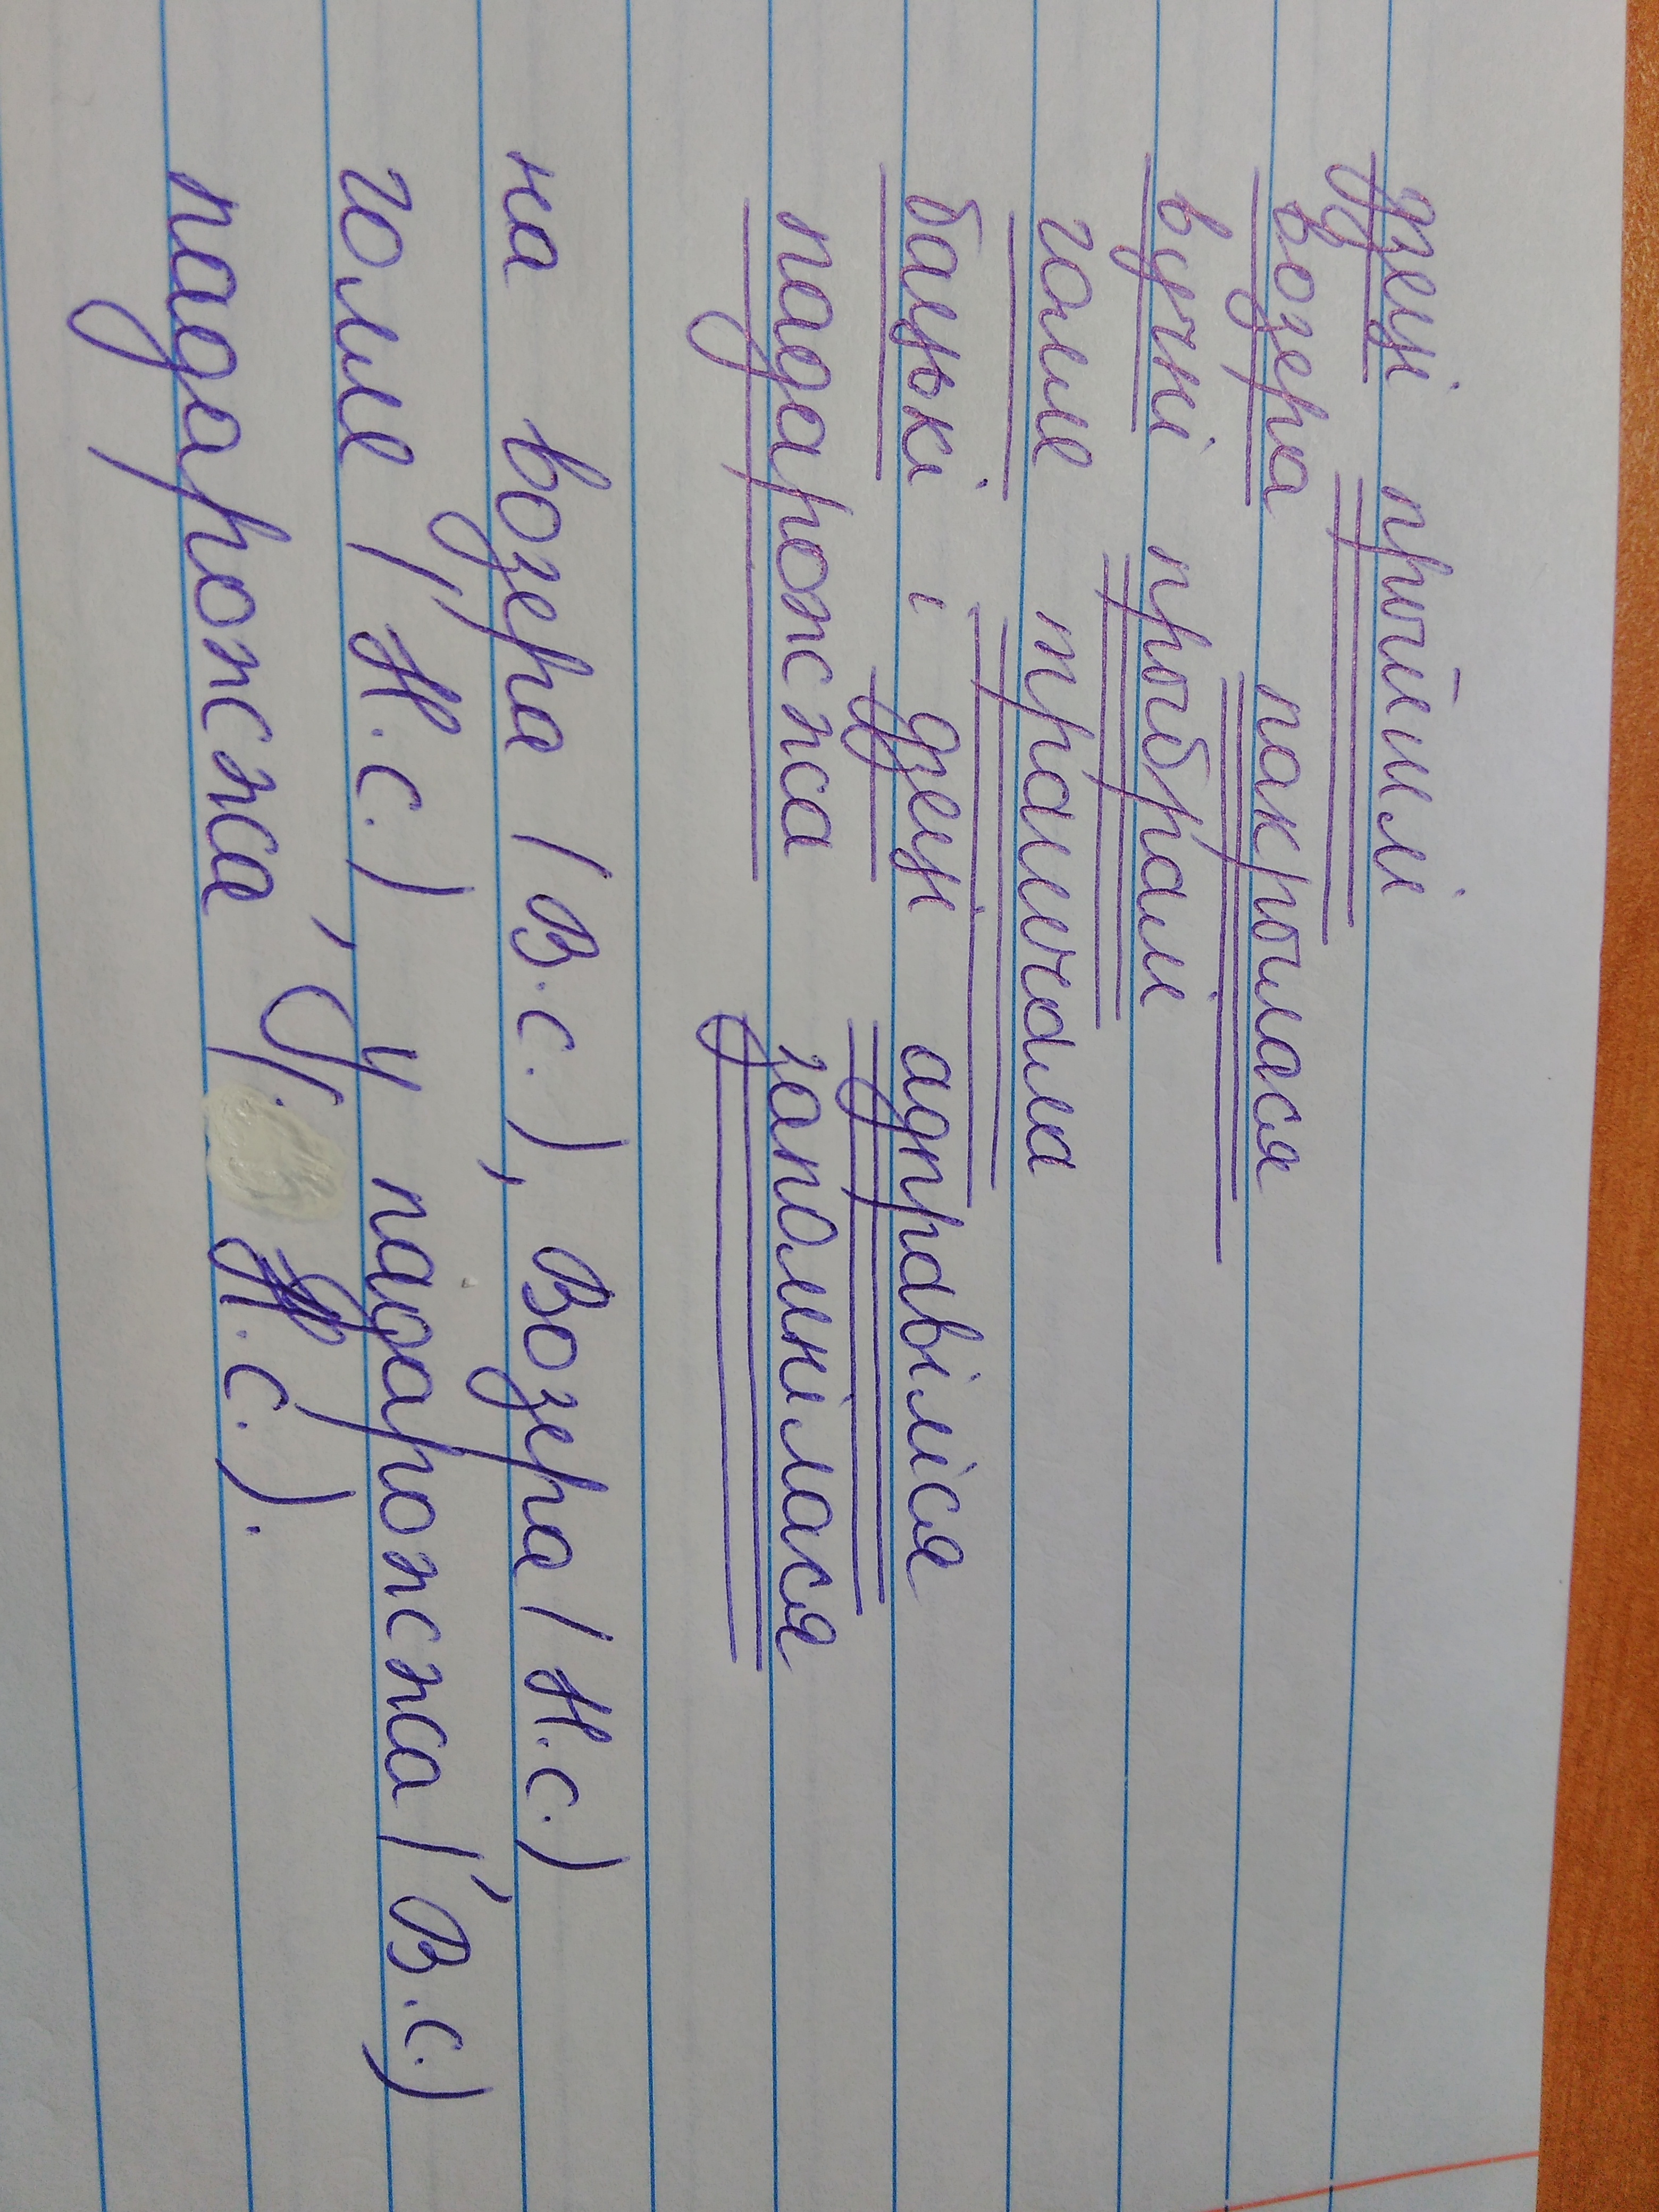 дзеці прыйшлі
возера пакрылася
вучні прыбралі
голле трашчала
бацькі і дзеці адправіліся
падарожжа запомнілася
на возера (В.с.), Возера (Н.с.)
голле (Н.с.), у падарожжа (В.с.)
падарожжа (Н.с.).